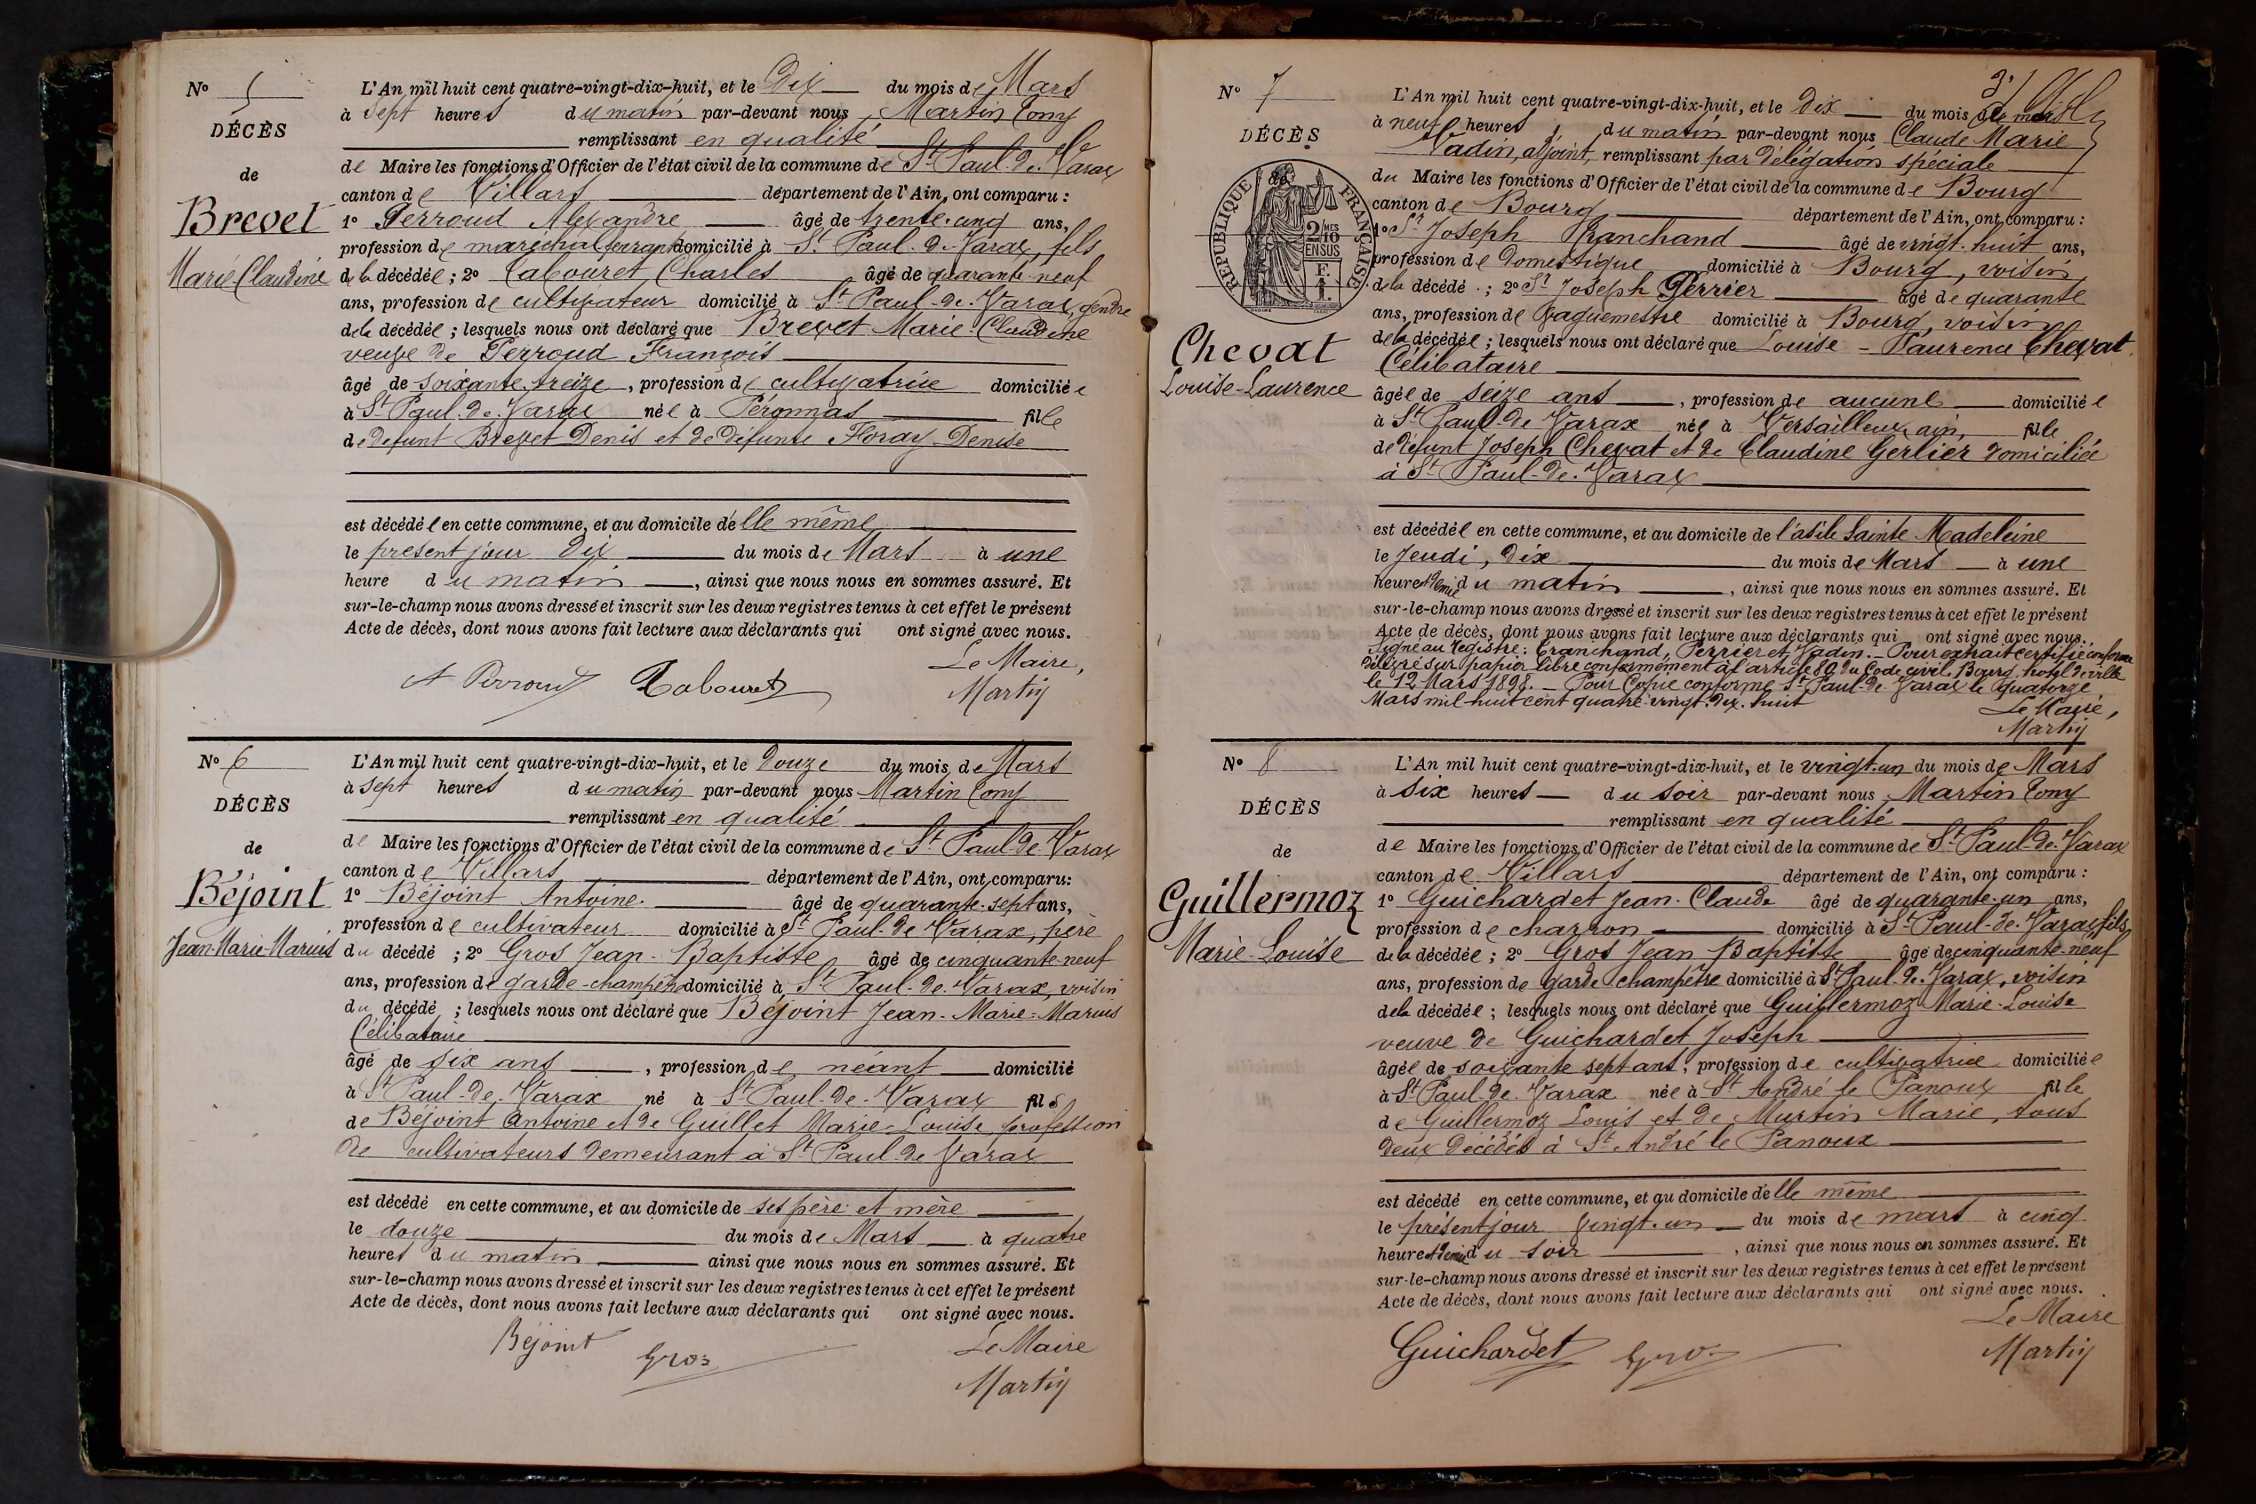 N° 5
DÉCÈS
de
Brevet
Marie Claudine
L'An mil huit cent quatre-vingt-dix-huit, et le Dix du mois de Mars
à sept heures du matin par-devant nous Martin Tony
remplissant en qualité
de Maire les fonctions d'Officier de l'état civil de la commune de St Paul-de-Varax
canton de Villars département de l'Ain, ont comparu :
1° Perroud Alexandre âgé de trente-cinq ans,
profession de maréchal ferrant domicilié à St Paul-de-Varax, fils
de la décédée ; 2° Tabouret Charles âgé de quarante neuf
ans, profession de cultivateur domicilié à St Paul-de-Varax, gendre
de la décédée ; lesquels nous ont déclaré que Brevet Marie-Claudine
veuve de Perroud François
âgé de soixante-treize, profession de cultivatrice domiciliée
à St Paul-de-Varax née à Péronnas fille
de défunt Brevet Denis et de défunte Floray Denise
est décédée en cette commune, et au domicile d'elle même
le présent jour dix du mois de Mars à une
heure du matin, ainsi que nous nous en sommes assuré. Et
sur-le-champ nous avons dressé et inscrit sur les deux registres tenus à cet effet le présent
Acte de décès, dont nous avons fait lecture aux déclarants qui ont signé avec nous.
Le Maire,
A Perroud Tabouret Martin
N° 6
DÉCÈS
de
Béjoint
Jean-Marie-Marius
L'An mil huit cent quatre-vingt-dix-huit, et le douze du mois de Mars
à sept heures du matin par-devant nous Martin Tony
remplissant en qualité
de Maire les fonctions d'Officier de l'état civil de la commune de St Paul-de-Varax
canton de Villars département de l'Ain, ont comparu:
1° Béjoint Antoine. âgé de quarante-sept ans,
profession de cultivateur domicilié à St Paul-de-Varax, père
du décédé ; 2° Gros Jean-Baptiste âgé de cinquante-neuf
ans, profession de garde-champêtre domicilié à St Paul-de-Varax, voisin
du décédé ; lesquels nous ont déclaré que Béjoint Jean-Marie-Marius
Célibataire
âgé de six ans, profession de néant domicilié
à St Paul-de-Varax né à St Paul-de-Varax fils
de Béjoint Antoine et de Guillet Marie-Louise, profession
de cultivateurs demeurant à St Paul-de-Varax
est décédé en cette commune, et au domicile de ses père et mère
le douze du mois de Mars à quatre
heures du matin ainsi que nous nous en sommes assuré. Et
sur-le-champ nous avons dressé et inscrit sur les deux registres tenus à cet effet le présent
Acte de décès, dont nous avons fait lecture aux déclarants qui ont signé avec nous.
Béjoint Gros Le Maire
Martin
3
N° 7
DÉCÈS
de
RÉPUBLIQUE FRANÇAISE
2/10 MES
EN SUS
Chevat
Louise-Laurence
L'An mil huit cent quatre-vingt-dix-huit, et le dix du mois de mars
à neuf heures du matin par-devant nous Claude Marie
Vadin, adjoint, remplissant par délégation spéciale
du Maire les fonctions d'Officier de l'état civil de la commune de Bourg
canton de Bourg département de l'Ain, ont comparu :
1° Sr Joseph Tranchand âgé de vingt-huit ans,
profession de domestique domicilié à Bourg, voisin
de la décédé ; 2° Sr Joseph Perrier âgé de quarante
ans, profession de Vaguemestre domicilié à Bourg, voisin
de la décédée ; lesquels nous ont déclaré que Louise-Laurence Chevat
Célibataire
âgée de seize ans, profession de aucune domiciliée
à St Paul-de-Varax née à Versailleux, ain, fille
de défunt Joseph Chevat et de Claudine Gerlier domiciliée
à St Paul-de-Varax
est décédée en cette commune, et au domicile de l'asile Sainte Madeleine
le Jeudi, dix du mois de Mars à une
heure et demie du matin, ainsi que nous nous en sommes assuré. Et
sur-le-champ nous avons dressé et inscrit sur les deux registres tenus à cet effet le présent
Acte de décès, dont nous avons fait lecture aux déclarants qui ont signé avec nous.
Signé au registre: Tranchand, Perrier et Vadin.- Pour extrait certifié conforme
délivré sur papier libre conformément à l'article 80 du Code civil. Bourg, hotel de ville
le 12 Mars 1898. - Pour Copie conforme St Paul-de-Varax le quatorze
Mars mil-huit cent quatre-vingt-dix-huit
Le Maire,
Martin
N° 8
DÉCÈS
de
Guillermoz
Marie-Louise
L'An mil huit cent quatre-vingt-dix-huit, et le vingt-un du mois de Mars
à six heures du soir par-devant nous Martin Tony
remplissant en qualité
de Maire les fonctions d'Officier de l'état civil de la commune de St Paul-de-Varax
canton de Villars département de l'Ain, ont comparu :
1° Guichardet Jean-Claude âgé de quarante-un ans,
profession de charron domicilié à St Paul-de-Varax, fils
de la décédée ; 2° Gros Jean Baptiste âgé de cinquante-neuf
ans, profession de garde champêtre domicilié à St Paul-de-Varax, voisin
de la décédée ; lesquels nous ont déclaré que Guillermoz Marie-Louise
veuve de Guichardet Joseph
âgée de soixante sept ans, profession de cultivatrice domiciliée
à St Paul-de-Varax née à St André le Panoux fille
de Guillermoz Louis et de Murtin Marie, tous
deux décédés à St André le Panoux
est décédé en cette commune, et au domicile d'elle même
le présent jour vingt-un du mois de mars à cinq
heures et demie du soir, ainsi que nous nous en sommes assuré. Et
sur-le-champ nous avons dressé et inscrit sur les deux registres tenus à cet effet le présent
Acte de décès, dont nous avons fait lecture aux déclarants qui ont signé avec nous.
Le Maire
Guichardet Gros Martin